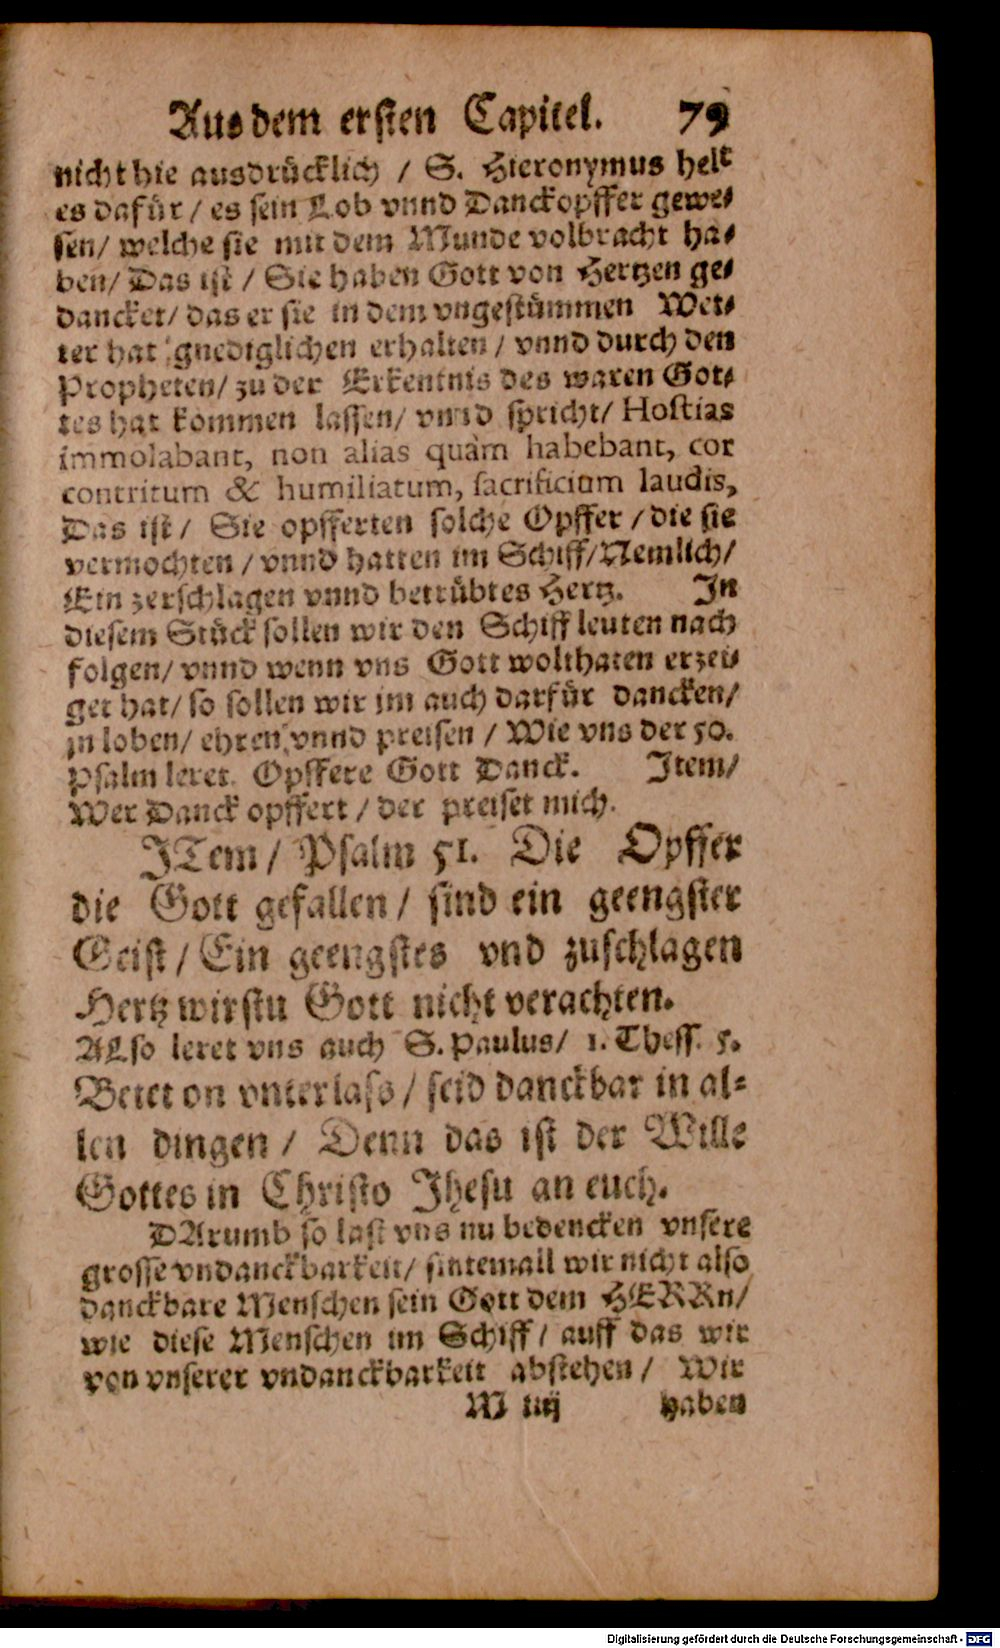 Aus dem ersten Capitel. 79
nicht hie ausdrücklich / S. Hieronymus helt
es dafür / es sein Lob vnnd Danckopffer gewe⸗
sen / welche sie mit dem Munde volbracht ha⸗
ben / Das ist / Sie haben Gott von Hertzen ge⸗
dancket / das er sie in dem vngestümmen Wet⸗
ter hat gnediglichen erhalten / vnnd durch den
Propheten / zu der Erkentnis des waren Got⸗
tes hat kommen lassen / vnnd spricht / Hostias
immolabant, non alias quàm habebant, cor
contritum & humiliatum, sacrificium laudis,
Das ist / Sie opfferten solche Opffer / die sie
vermochten / vnnd hatten im Schiff / Nemlich /
Ein zerschlagen vnnd betrübtes Hertz. In
diesem Stück sollen wir den Schiffleuten nach
folgen / vnnd wenn vns Gott wolthaten erzei⸗
get hat / so sollen wir im auch darfür dancken /
in loben / ehren vnnd preisen / Wie vns der 50.
Psalm leret. Opffere Gott Danck. Item /
Wer Danck opffert / der preiset mich.
ITem / Psalm 51. Die Opffer
die Gott gefallen / sind ein geengster
Geist / Ein geengstes vnd zuschlagen
Hertz wirstu Gott nicht verachten.
ALso leret vns auch S. Paulus / 1. Thess. 5.
Betet on vnterlass / seid danckbar in al⸗
len dingen / Denn das ist der Wille
Gottes in Christo Jhesu an euch.
DArumb so last vns nu bedencken vnsere
grosse vndanckbarkeit / sintemall wir nicht also
danckbare Menschen sein Gott dem HERRn /
wie diese Menschen im Schiff / auff das wir
von vnserer vndanckbarkeit abstehen / Wir
M iiij haben
Digitalisierung gefördert durch die Deutsche Forschungsgemeinschaft - DFG